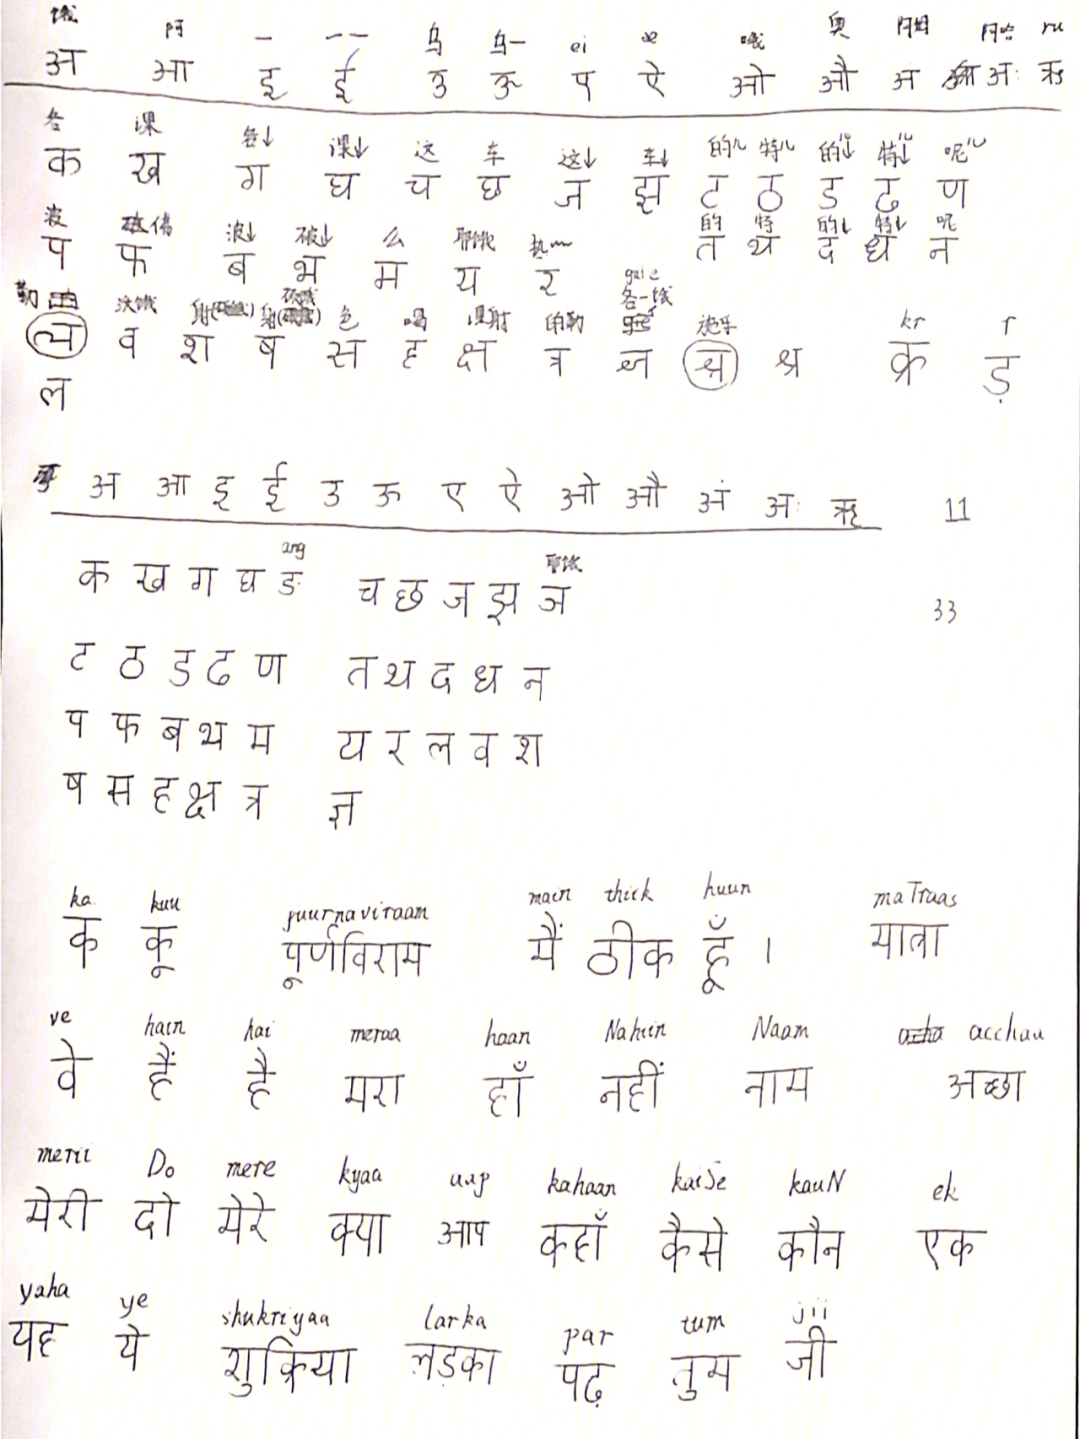 饿 阿 一 一一 乌 乌一 ei æ 哦 奥 阿姆 阿哈 ru
अ आ इ ई उ ऊ ए ऐ ओ औ अ अः ऋ
各 课 各↓ 课↓ 这 车 这↓ 车↓ 的儿 特儿 的儿↓ 特儿↓ 呢儿
क ख ग घ च छ ज झ ट ठ ड ढ ण
波 破佛 波↓ 破↓ 么 耶饿 热 的 特 的↓ 特↓ 呢
प फ ब भ म य र त थ द ध न
勒 沃饿 射 射 色 喝 课射 的勒 各一饿 施乐 kr r
व श ष स ह क्ष त्र ज्ञ श्र श्र क्र ड़
ल
अ आ इ ई उ ऊ ए ऐ ओ औ अं अः ऋ 11
ang 耶饿
क ख ग घ ङ च छ ज झ ञ 33
ट ठ ड ढ ण त थ द ध न
प फ ब भ म य र ल व श
ष स ह क्ष त्र ज्ञ
ka kuu puurnaviraam main thiik huun maTraas
क कू पूर्णविराम मैं ठीक हूँ । मात्रा
ve hain hai meraa haan Nahiin Naam acchaa
वे हैं है मरा हाँ नहीं नाम अच्छा
merii Do mere kyaa aap kahaan kaiSe kauN ek
मेरी दो मेरे क्या आप कहाँ कैसे कौन एक
yaha ye shukriyaa larka par tum jii
यह ये शुक्रिया लड़का पढ़ तुम जी